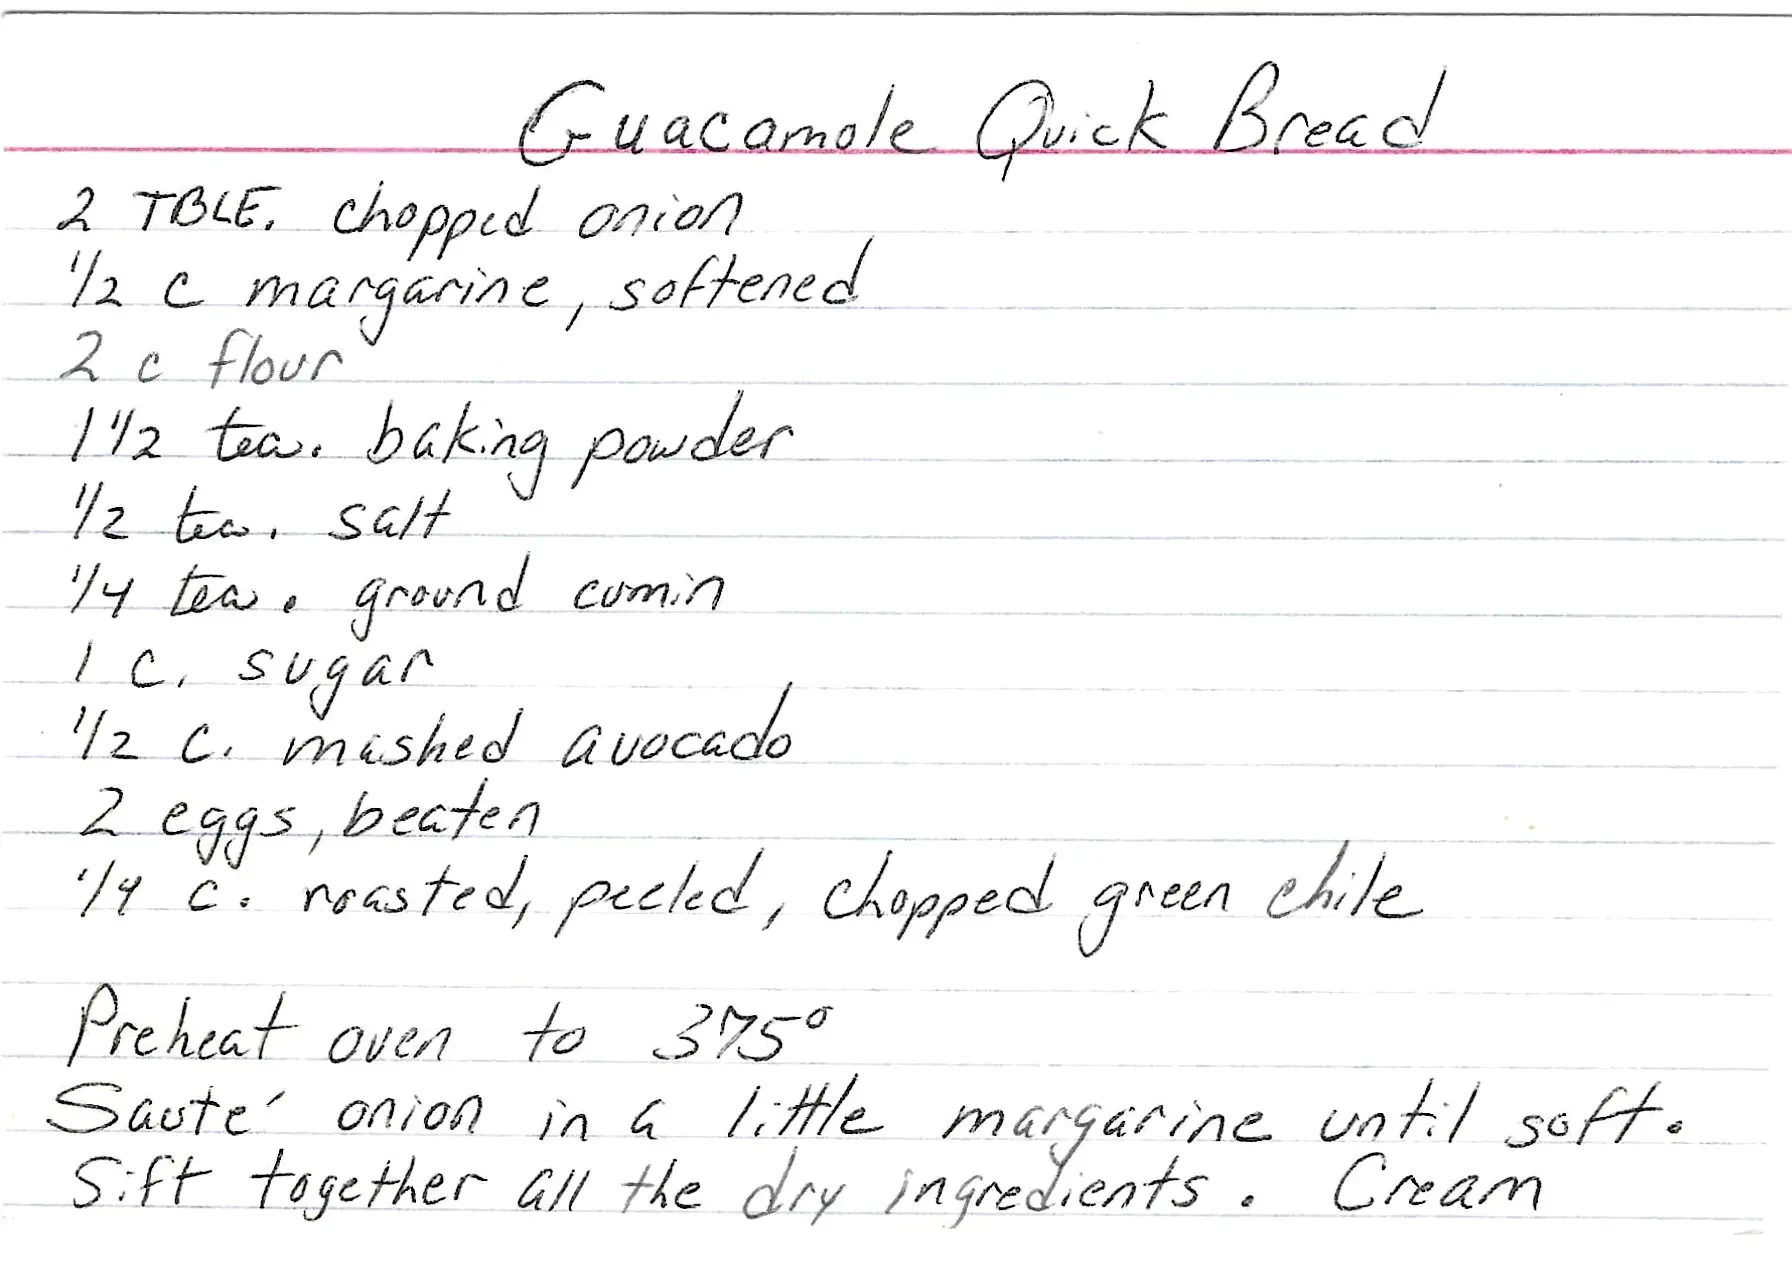 Guacamole Quick Bread
2 TBLE. chopped onion
1/2 c margarine, softened
2 c flour
1 1/2 tea. baking powder
1/2 tea. salt
1/4 tea. ground cumin
1 c. sugar
1/2 c. mashed avocado
2 eggs, beaten
1/4 c. roasted, peeled, chopped green chile
Preheat oven to 375°
Sauté onion in a little margarine until soft.
Sift together all the dry ingredients. Cream